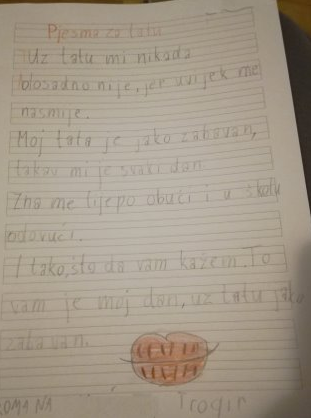 Pjesma za tatu
Uz tatu mi nikada
dosadno nije, jer uvijek me
nasmije.
Moj tata je jako zabavan,
takav mi je svaki dan.
Zna me lijepo obući i u školu
odovući.
I tako, što da vam kažem. To
vam je moj dan, uz tatu jako
zabavan.
ROMANA
Trogir